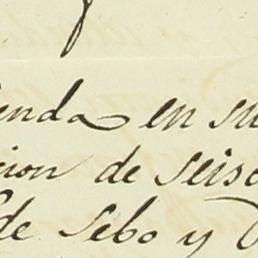 enda en su
cion de seisc
de sebo y